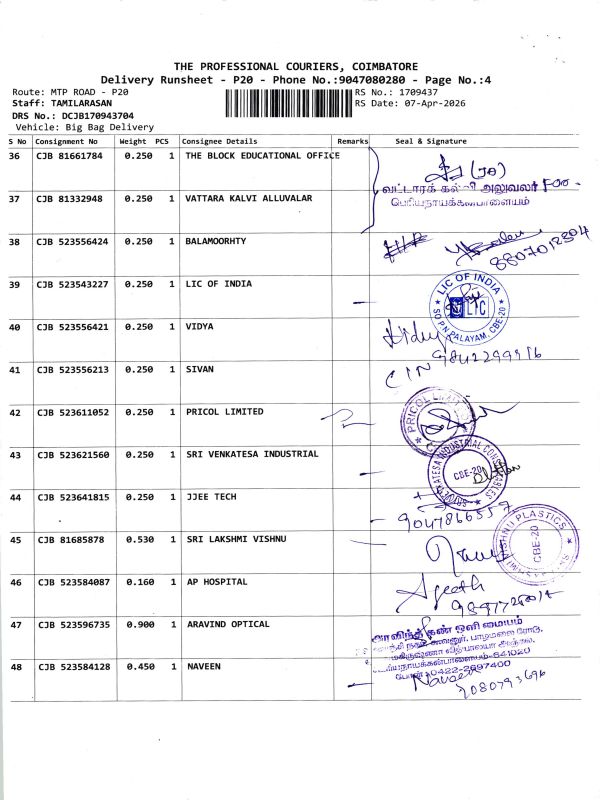 THE PROFESSIONAL COURIERS, COIMBATORE
Delivery Runsheet - P20 - Phone No.:9047080280 - Page No.:4
Route: MTP ROAD - P20
RS No.: 1709437
Staff: TAMILARASAN
RS Date: 07-Apr-2026
DRS No.: DCJB170943704
Vehicle: Big Bag Delivery
S No Consignment No Weight PCS Consignee Details Remarks Seal & Signature
36 CJB 81661784 0.250 1 THE BLOCK EDUCATIONAL OFFICE
வட்டாரக் கல்வி அலுவலர்
பெரியநாயக்கன்பாளையம்
37 CJB 81332948 0.250 1 VATTARA KALVI ALLUVALAR
38 CJB 523556424 0.250 1 BALAMOORHTY
8807012804
39 CJB 523543227 0.250 1 LIC OF INDIA
LIC OF INDIA
LIC
S.O P.N.PALAYAM, CBE-20
40 CJB 523556421 0.250 1 VIDYA
Vidya
41 CJB 523556213 0.250 1 SIVAN
42 CJB 523611052 0.250 1 PRICOL LIMITED
PRICOL LIMITED
43 CJB 523621560 0.250 1 SRI VENKATESA INDUSTRIAL
CBE-20
44 CJB 523641815 0.250 1 JJEE TECH
45 CJB 81685878 0.530 1 SRI LAKSHMI VISHNU
VISHNU PLASTICS
CBE-20
46 CJB 523584087 0.160 1 AP HOSPITAL
47 CJB 523596735 0.900 1 ARAVIND OPTICAL
அரவிந்த் கண் ஒளி மையம்
0422-2697400
48 CJB 523584128 0.450 1 NAVEEN
Naveen